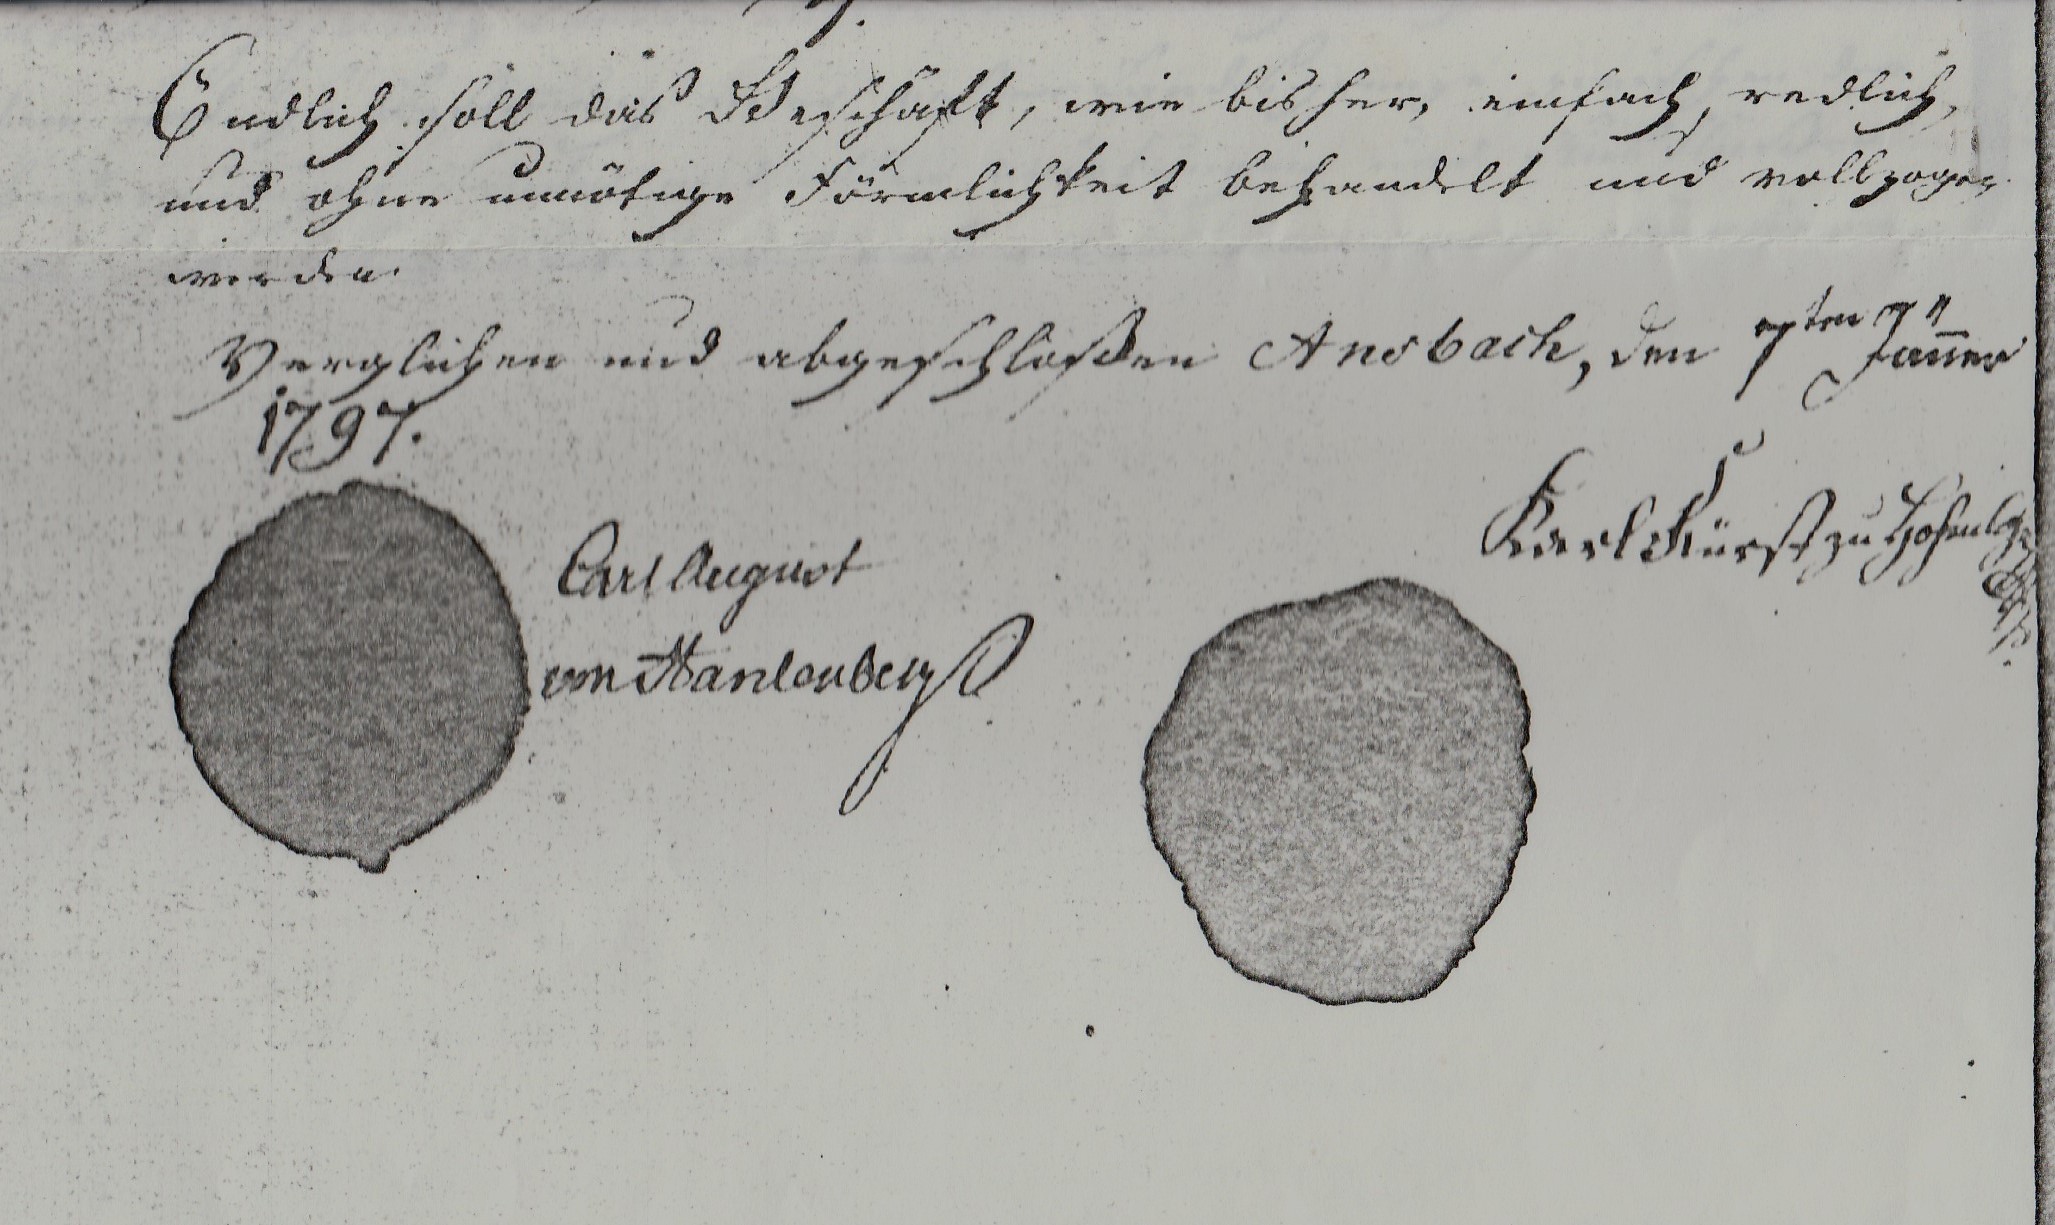 Endlich soll das Geschäft, wie bisher, einfach, redlich,
und ohne unnötige Förmlichkeit behandelt und vollzogen
werden.
Verglichen und abgeschloßen Ansbach, den 7ten Jänner
1797.
Karl Fürst zu Hohenlohe
Carl August
von Hardenberg